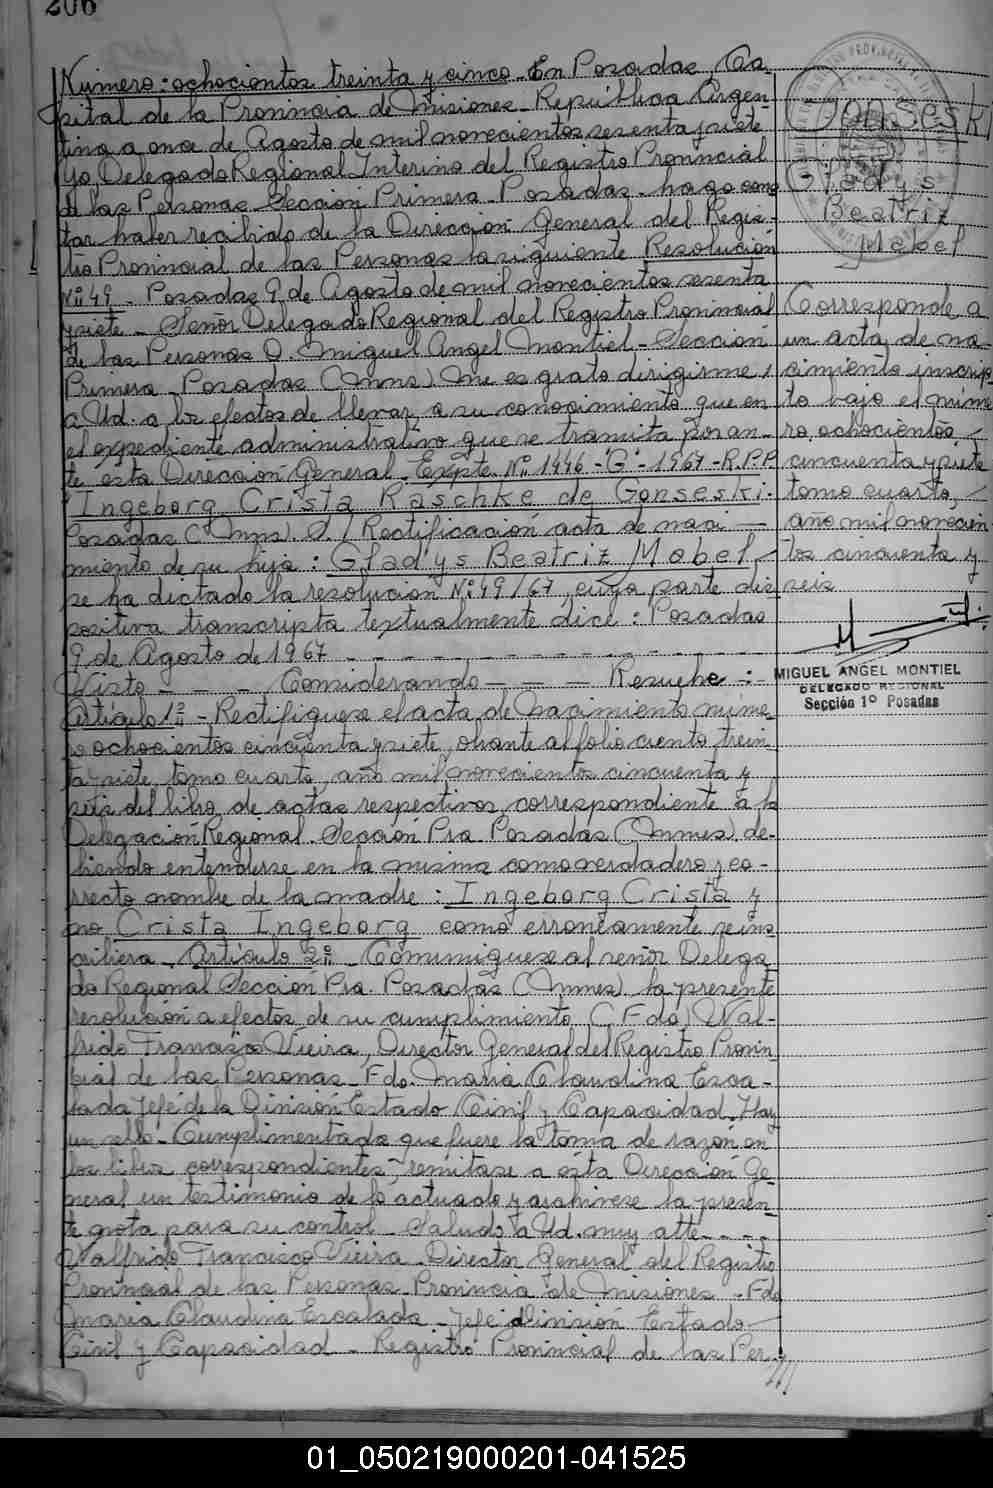 206
Número: ochocientos treinta y cinco. En Posadas, Ca-
pital de la Provincia de Misiones. República Argen-
tina a once de Agosto de mil novecientos sesenta y siete
Yo, Delegado Regional Interino del Registro Provincial
de las Personas Sección Primera. Posadas. hago cons
tar haber recibido de la Dirección General del Regis-
tro Provincial de las Personas la siguiente Resolución
Nº 49 - Posadas 9 de Agosto de mil novecientos sesenta
y siete - Señor Delegado Regional del Registro Provincial
de las Personas D. Miguel Angel Montiel - Sección
Primera Posadas (Mnes) Me es grato dirigirme
a Ud. a los efectos de llevar a su conocimiento que en
el expediente administrativo que se tramita por an-
te esta Dirección General. Expte Nº 1446 -"G"- 1967 - R.P.P.
"Ingeborg Crista Raschke de Gonseski.
Posadas (Mnes). S./ Rectificación acta de naci -
miento de su hija: Gladys Beatriz Mabel -
se ha dictado la resolución Nº 49/67, cuya parte dis
positiva transcripta textualmente dice: Posadas
9 de Agosto de 1967 - - - - - - - - - - - - - - -
Visto - - - Considerando - - - Resuelve: -
Artículo 1º - Rectifíquese el acta de nacimiento núme-
ro ochocientos cincuenta y siete, obrante al folio ciento trein
ta y siete, tomo cuarto, año mil novecientos cincuenta y
seis del libro de actas respectivos, correspondiente a la
Delegación Regional. Sección Pra. Posadas (Mnes), de-
biendo entenderse en la misma como verdadero y co-
rrecto nombre de la madre: Ingeborg Crista y
no Crista Ingeborg como erroneamente se ins
cribiera. Artículo 2º - Comuníquese al señor Delega
do Regional Sección Pra. Posadas (Mnes) la presente
resolución a efectos de su cumplimiento (Fdo) Wal-
frido Francisco Vieira, Director General del Registro Provin
cial de las Personas - Fdo. Maria Claudina Esca-
lada Jefe de la División Estado Civil y Capacidad. Hay
un sello - Cumplimentada que fuere la toma de razón en
los libros correspondientes, remitase a ésta Dirección Ge-
neral un testimonio de lo actuado y archívese la presen-
te nota para su control - Saludo a Ud. muy atte - - - -
Walfrido Francisco Vieira - Director General del Registro
Provincial de las Personas. Provincia de Misiones - Fdo
Maria Claudina Escalada - Jefe División Estado
Civil y Capacidad - Registro Provincial de las Per-
////
Gonseski
Gladys
Beatriz
Mabel
Corresponde a
un acta de na-
cimiento inscrip-
to bajo el núme
ro, ochocientos
cincuenta y siete
tomo cuarto,
año mil novecien
tos cincuenta y
seis
MIGUEL ANGEL MONTIEL
DELEGADO REGIONAL
Sección 1º Posadas
01_050219000201-041525